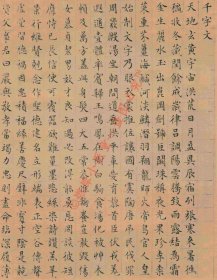 千字文
天地玄黃宇宙洪荒日月盈昃辰宿列張寒來暑往
秋收冬藏閏餘成歲律呂調陽雲騰致雨露結為霜
金生麗水玉出崑岡劍號巨闕珠稱夜光果珍李柰
菜重芥薑海鹹河淡鱗潛羽翔龍師火帝鳥官人皇
始制文字乃服衣裳推位讓國有虞陶唐弔民伐罪
周發殷湯坐朝問道垂拱平章愛育黎首臣伏戎羌
遐邇壹體率賓歸王鳴鳳在樹白駒食場化被草木
賴及萬方蓋此身髮四大五常恭惟鞠養豈敢毀傷
女慕貞絜男效才良知過必改得能莫忘罔談彼短
靡恃己長信使可覆器欲難量墨悲絲染詩讚羔羊
景行維賢剋念作聖德建名立形端表正空谷傳聲
虛堂習聽禍因惡積福緣善慶尺璧非寶寸陰是競
資父事君曰嚴與敬孝當竭力忠則盡命臨深履薄